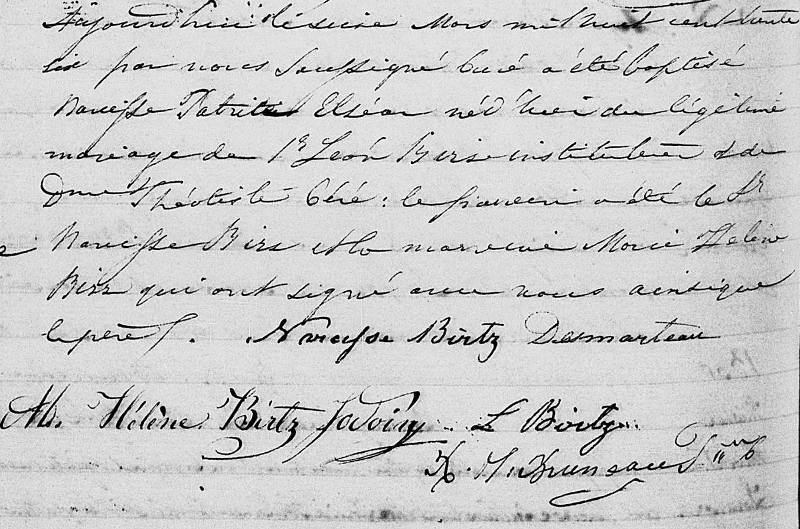 Aujourd'hui le seize Mars mil huit cent trente
six par nous Soussigné Curé a été baptisé
Narcisse Patrick Elséar né d'hui du légitime
mariage de Sr Léon Birs instituteur & de
Dme Théotiste Céré : le parrein a été le Sr
Narcisse Birs et la marreine Marie Helène
Birs qui ont signé avec nous ainsi que
le père /. Narcisse Birtz Desmarteau
M. Hélène Birtz Jodoin L Birtz
Bruneau